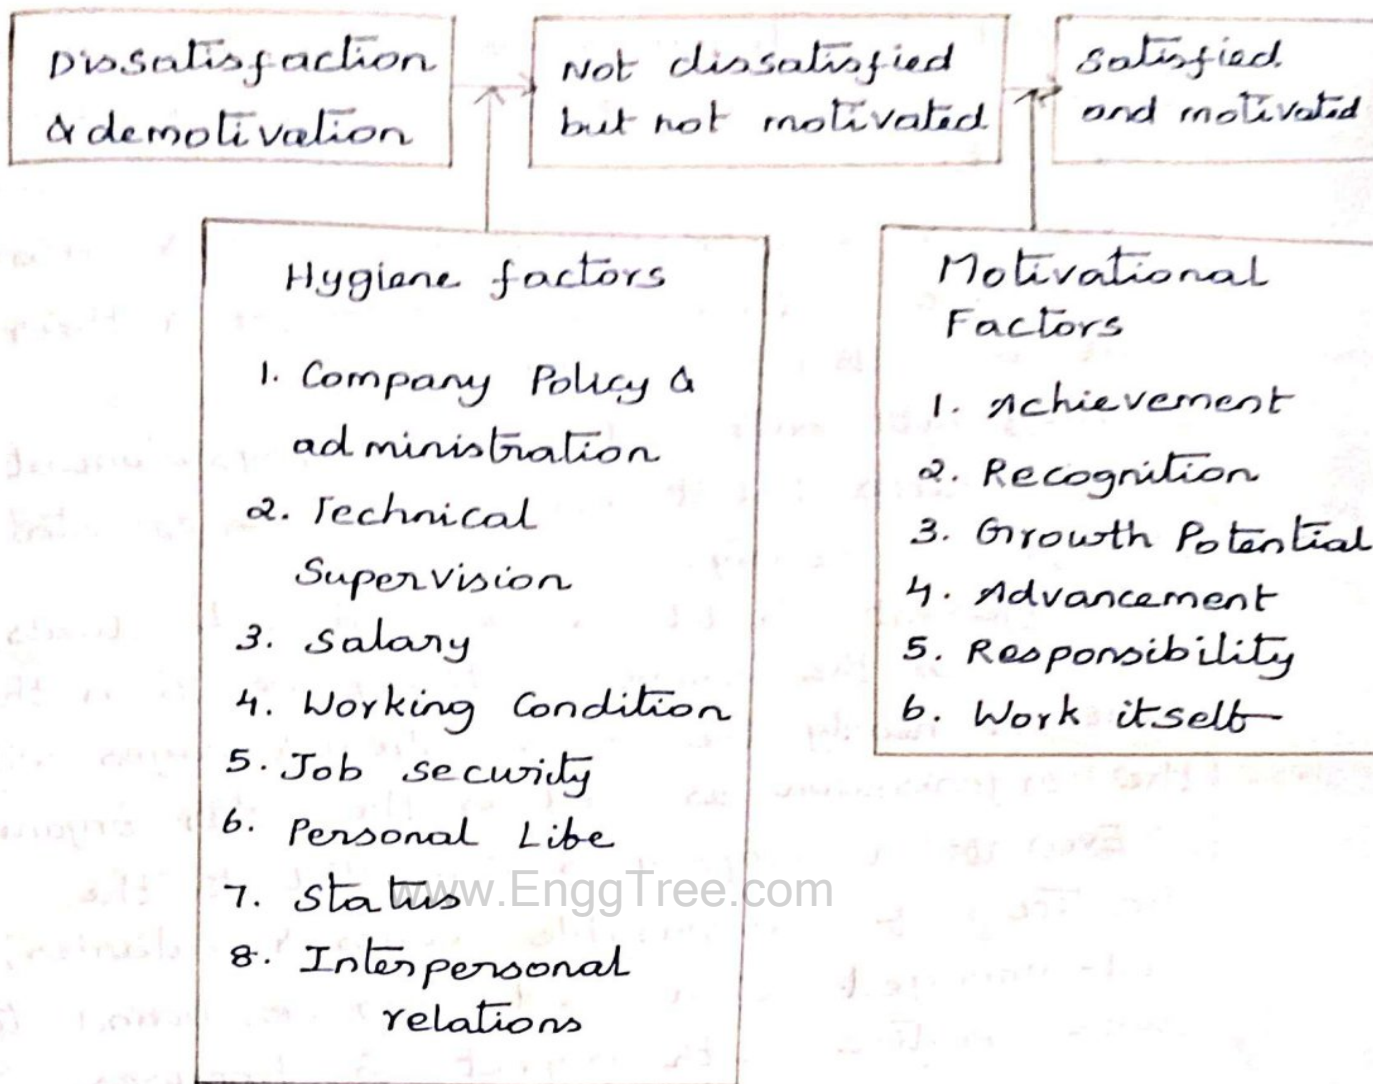 Dissatisfaction
& demotivation
Not dissatisfied
but not motivated
Satisfied
and motivated
Hygiene factors
1. Company Policy &
administration
2. Technical
Supervision
3. Salary
4. Working Condition
5. Job security
6. Personal Life
7. Status
8. Interpersonal
relations
Motivational
Factors
1. Achievement
2. Recognition
3. Growth Potential
4. Advancement
5. Responsibility
6. Work itself
www.EnggTree.com